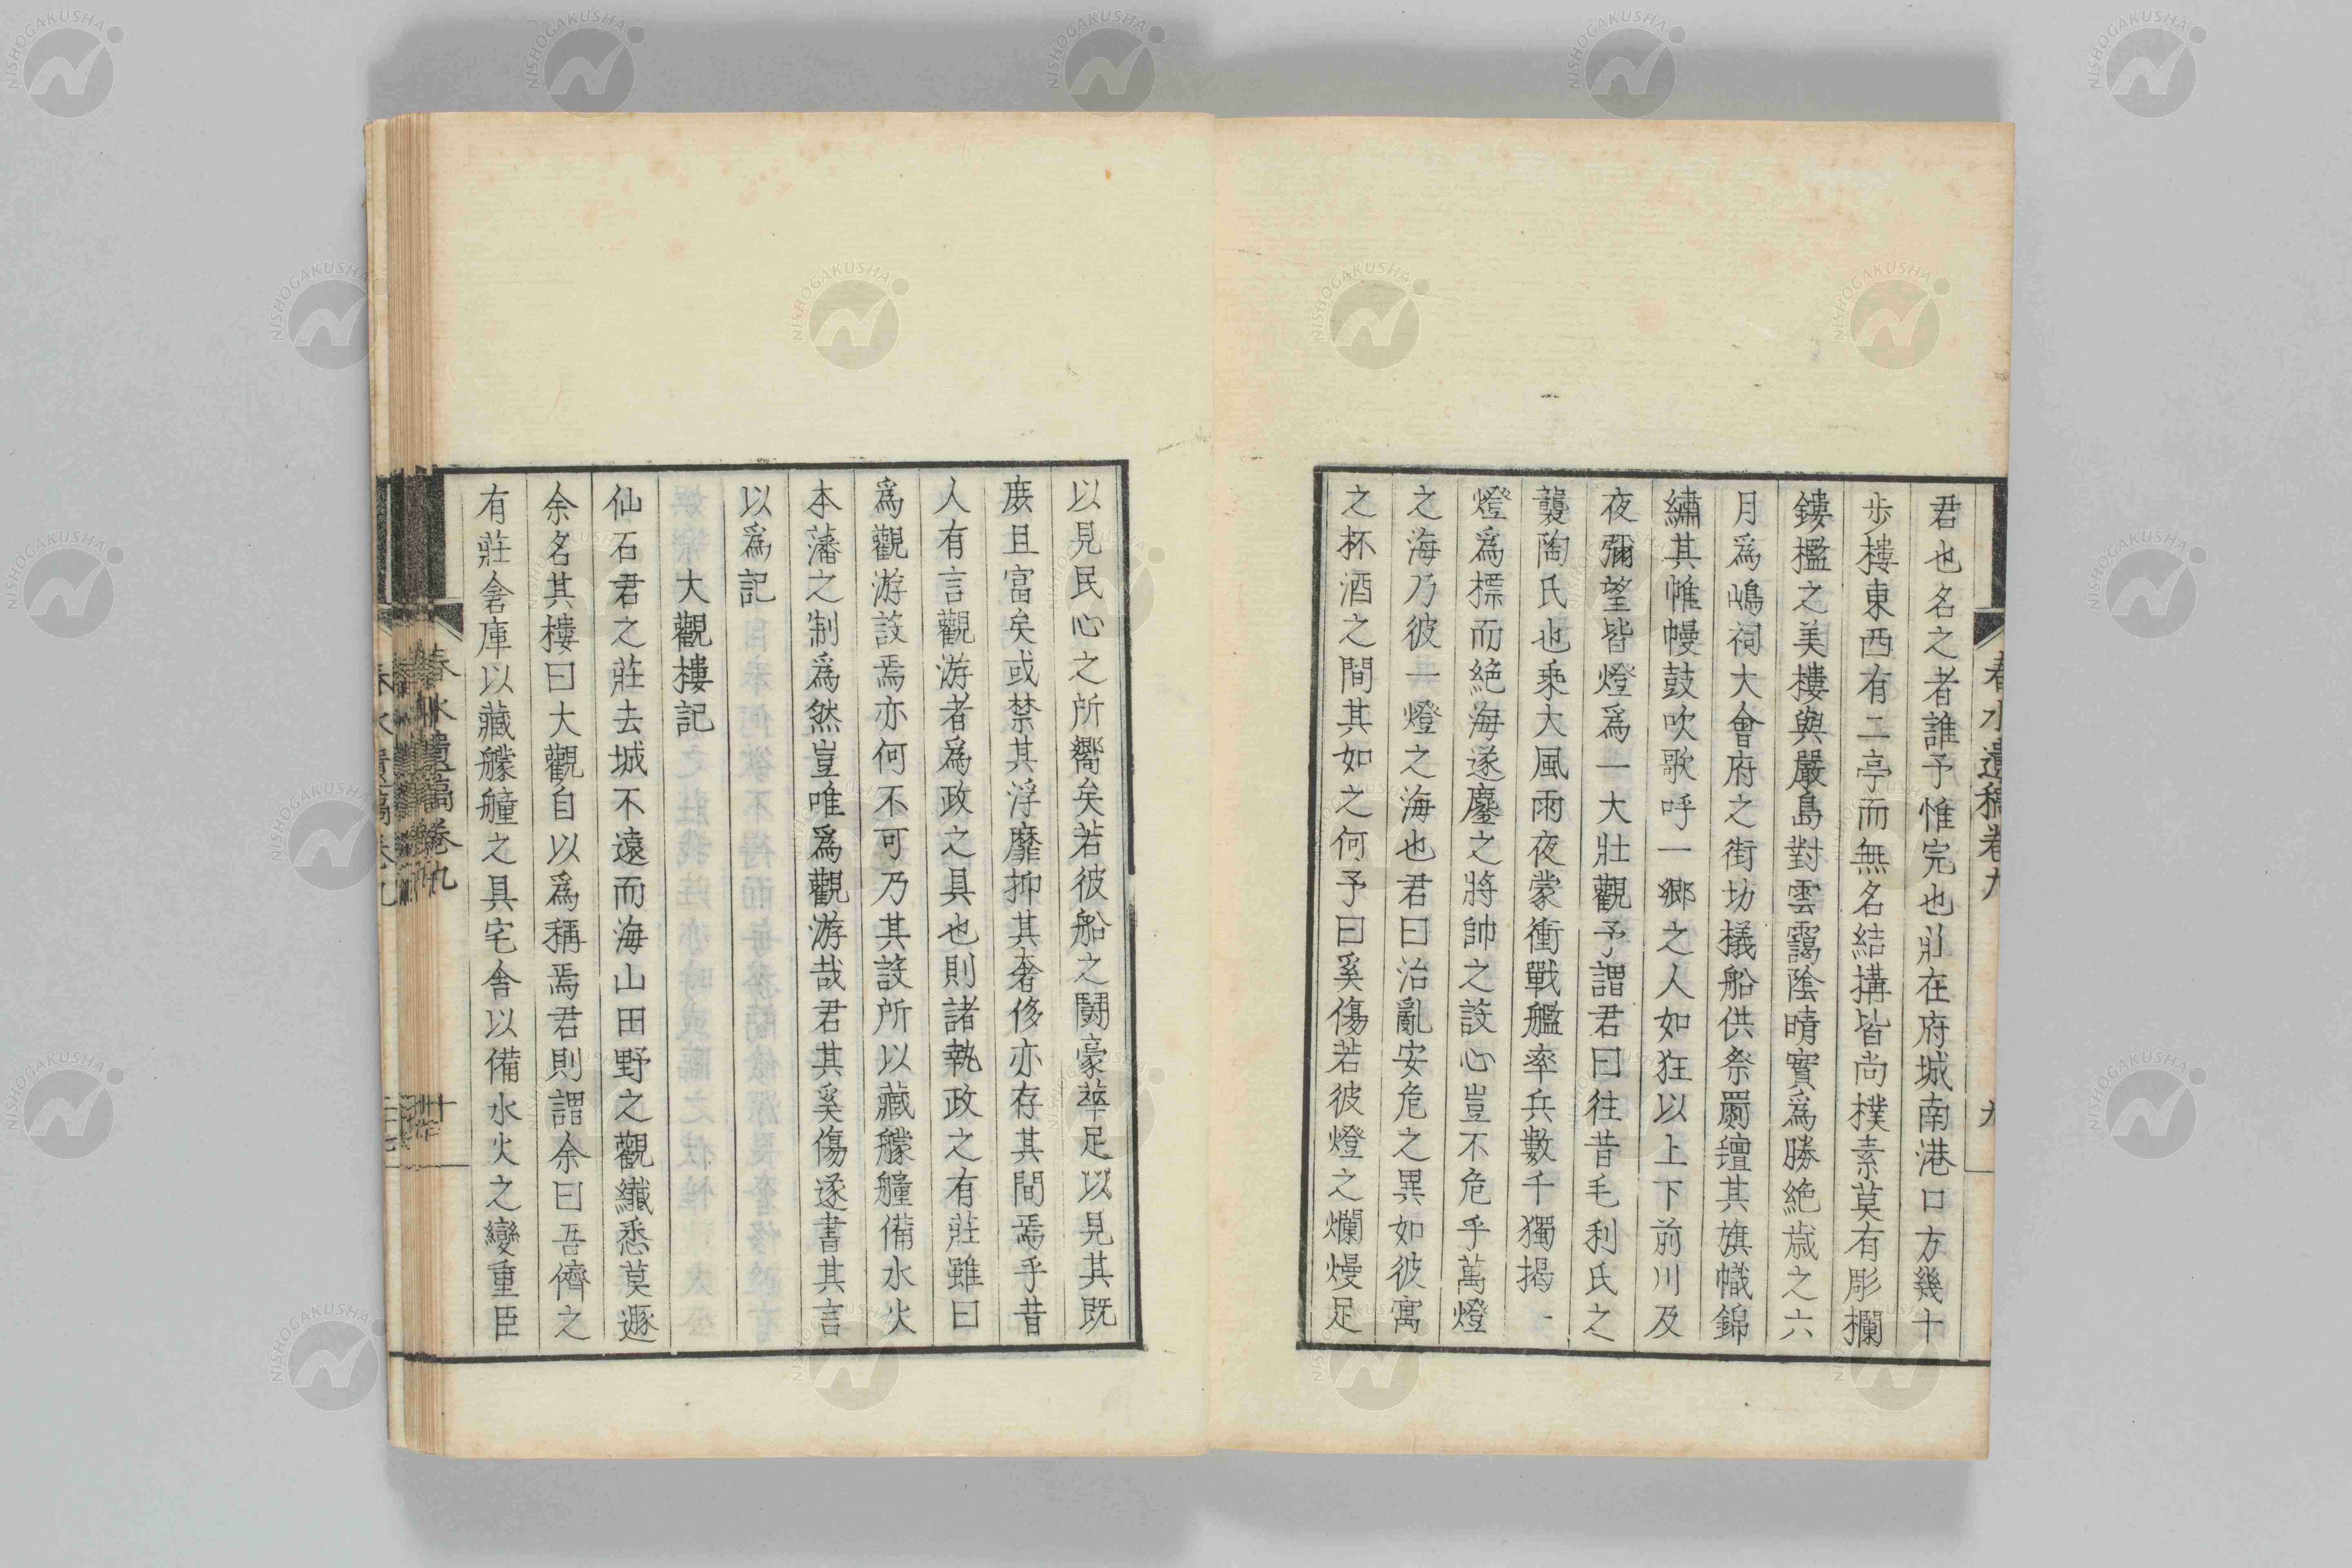 春水遺稿卷九
九
君也名之者誰予惟完也莊在府城南港口方幾十
步樓東西有二亭而無名結搆皆尚樸素莫有彫欄
鏤檻之美樓與嚴島對雲靄陰晴實爲勝絶歳之六
月爲嶋祠大會府之街坊檥船供祭罽氊其旗幟錦
繡其帷幔鼓吹歌呼一鄉之人如狂以上下前川及
夜彌望皆燈爲一大壯觀予謂君曰往昔毛利氏之
襲陶氏也乘大風雨夜蒙衝戰艦率兵數千獨揭一
燈爲標而絶海遂鏖之將帥之設心豈不危乎萬燈
之海乃彼一燈之海也君曰治亂安危之異如彼寓
之杯酒之間其如之何予曰奚傷若彼燈之爛熳足
以見民心之所嚮矣若彼船之鬪豪華足以見其既
庶且富矣或禁其浮靡抑其奢侈亦存其間焉乎昔
人有言觀游者爲政之具也則諸執政之有莊雖曰
爲觀游設焉亦何不可乃其設所以藏艨艟備水火
本藩之制爲然豈唯爲觀游哉君其奚傷遂書其言
以爲記
大觀樓記
仙石君之莊去城不遠而海山田野之觀纖悉莫遯
余名其樓曰大觀自以爲稱焉君則謂余曰吾儕之
有莊舍庫以藏艨艟之具宅舍以備水火之變重臣
春水遺稿卷九
十
NISHOGAKUSHA